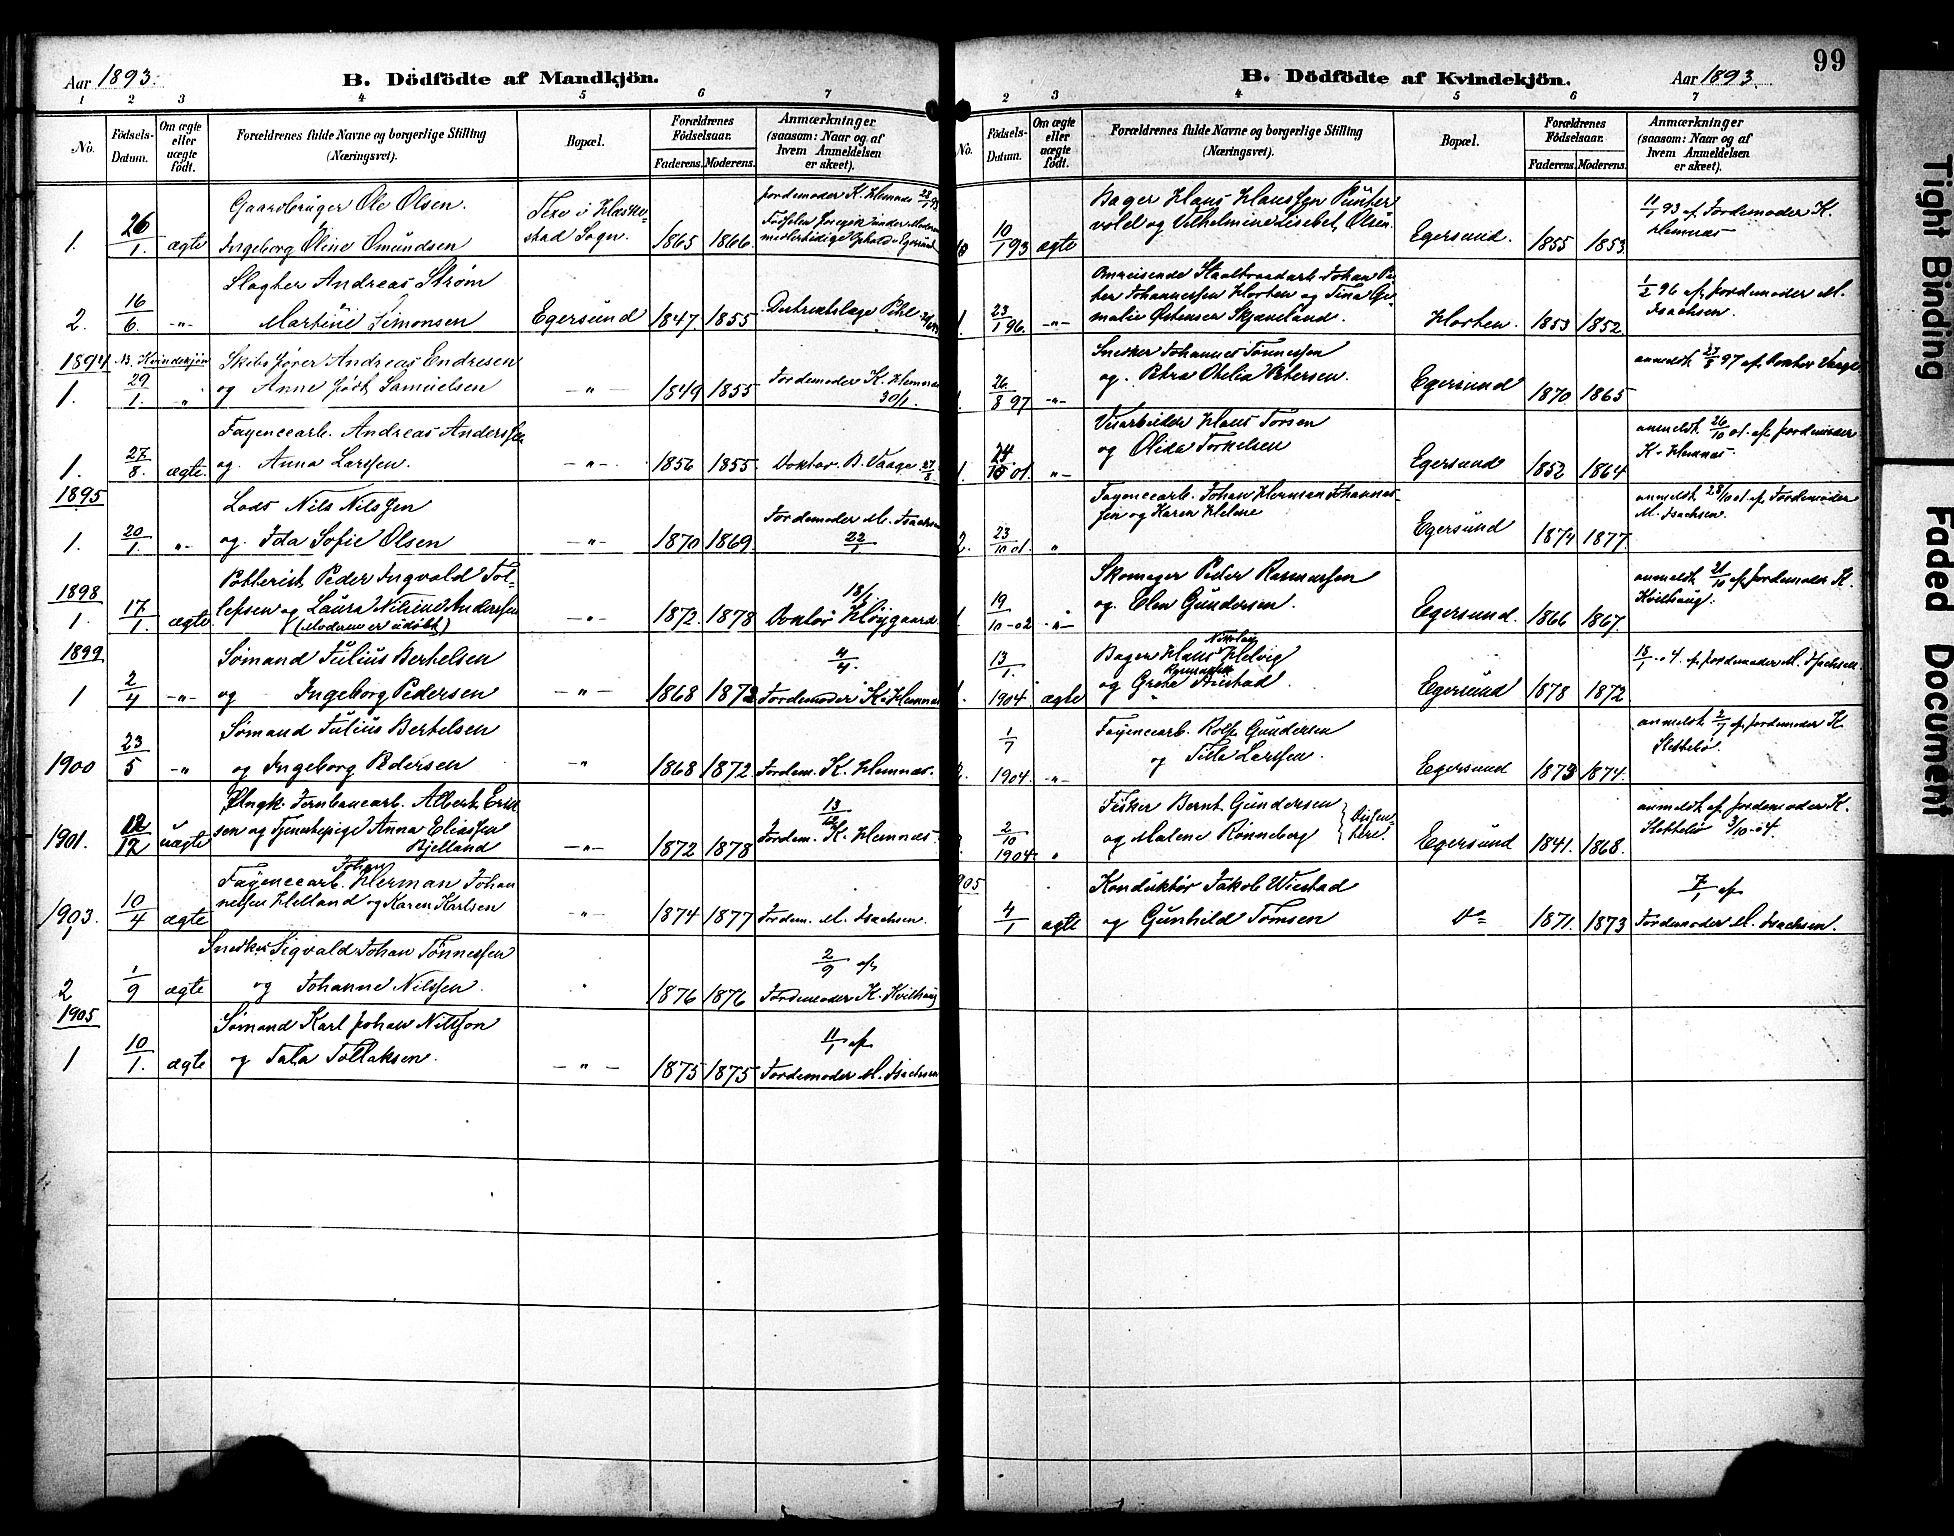 99
Aar 1893.
B. Dödfödte af Mandkjön.
1 2 3 4 5 6 7
No.
Födsels-Datum.
Om ægte eller uægte födt.
Forældrenes fulde Navne og borgerlige Stilling (Næringsvei).
Bopæl.
Forældrenes Födselsaar.
Faderens. Moderens.
Anmærkninger (saasom: Naar og af hvem Anmeldelsen er skeet).
Gaardbruger Ole Olsen.
Ingeborg Oline Omundsen
1. 26/1. ægte
Sogn. 1865 1866.
Jordemoder K. Hemnæs
Slagter Andreas Strøm
Martine Simonsen
2. 16/6. -„- Egersund 1847 1855
1894 No. Kvindekjøn Skibsfører Andreas Endresen
og Anne født Samuelsen
1. 29/1. „ -„- 1849 1855 Jordemoder K. Hemnæs 30/1.
Fayencearb. Andreas Anderssen
og. Anna Larssen.
1. 27/8. ægte. -„- 1856 1855 Doktor B. Vaage 27/8
1895
Lods Nils Nilssen
og. Ida Sofie Olsen
1. 20/1. „- -„- 1870 1869. Jordemoder M. Isachsen 22/1
1898
Potterist Peder Ingvald Tol-
lefsen og Laura Anderssen
(Moderen er udøbt)
1. 17/1. ægte -„- 1872. 1878 18/1. Doktor Høygaard
1899
Sømand Julius Bertelsen
og Ingeborg Pedersen
1 2/4 -„- -„- 1868 1872 4/4. Jordemoder K. Hemnæs
Sømand Julius Bertelsen
og Ingeborg Pedersen
1900 23/5 -„ -„ 1868 1872 Jordem. K. Hemnæs.
Ungk. Jernbanearb. Albert Erik-
sen og Tjenestepige Anna Eliassen
Bjelland
1901. 12/12 uægte -„- 1872 1878 13/12 Jordem. K. Hemnæs
Fayencearb. Johan Herman Johan
nessen Helland og Karen Karlsen
1903. 10/4 ægte -„- 1874 1877 Jordem. M. Isachsen.
Snedker Sigvald Johan Tønnessen
og Johanne Nilssen.
2 1/9 ægte „ 1876 1876 2/9 af Jordemoder K. Kvilhaug
1905
Sømand Karl Johan Nilsson
og Tala Tollaksen.
1 10/1. ægte -„- 1875 1875 11/1 af Jordemoder M. Isachsen
B. Dödfödte af Kvindekjön.
Aar 1893.
2 3 4 5 6 7
No.
Födsels-Datum.
Om ægte eller uægte födt.
Forældrenes fulde Navne og borgerlige Stilling (Næringsvei).
Bopæl.
Forældrenes Födselsaar.
Faderens. Moderens.
Anmærkninger (saasom: Naar og af hvem Anmeldelsen er skeet).
Bager Hans Hanssen Punter
vold og Vilhelmine Lisebet Olsen
10/1 93 ægte Egersund. 1855 1853. 11/1 93 af Jordemoder K. Hemnæs
Omreisende Staaltraadarb. Johan Pe-
ter Johannessen Horten og Tina
malie Østensen Skjæveland.
23/1 96. -„- Horten. 1853 1852. 1/2 96 af Jordemoder M. Isachsen.
Snedker Johannes Tønnessen
og. Petra Otelia Petersen.
26/8 97 -„- Egersund 1870 1865 anmeldt 27/8 97 af Doktor Vaage
Veiarbeider Hans Torsen
og Olida Torkelsen
24/10 01. „- Egersund 1852 1864 anmeldt 26/10 01. af Jordemoder K. Hemnæs.
Fayencearb. Johan Herman Johannes-
sen og Karen Helene
2. 23/10 01. „ Egersund 1874 1877. anmeldt 28/10 01 af Jordemoder M. Isachsen.
Skomager Peder Rasmussen
og. Elen Gundersen.
19/10-02 -„- Egersund. 1866 1867. anmeldt 21/10 af Jordemoder K. Kvilhaug.
Bager Hans Nikolay Helvig
og Grete Rasmusdtr
13/1. 1904. ægte Egersund 1878 1872 18/1-04. af Jordemoder M. Isachsen
Fayencearb. Rolf Gundersen
og Tilla Larssen.
1/7 1904. -„- Egersund 1873 1874. anmeldt 2/7 af Jordemoder K. Slettebö.
Fisker Bernt Gundersen
og Malene Rønneberg
Dissen-
tere.
2/10 1904 „ Egersund 1841. 1868. anmeldt af Jordemoder K. Slettebö 3/10-04.
905
Konduktør Jakob Wiestad
og Gunhild Tomsen
4/1 ægte Do 1871. 1873 7/1 af Jordemoder M. Isachsen.
Tight Binding
Faded Document